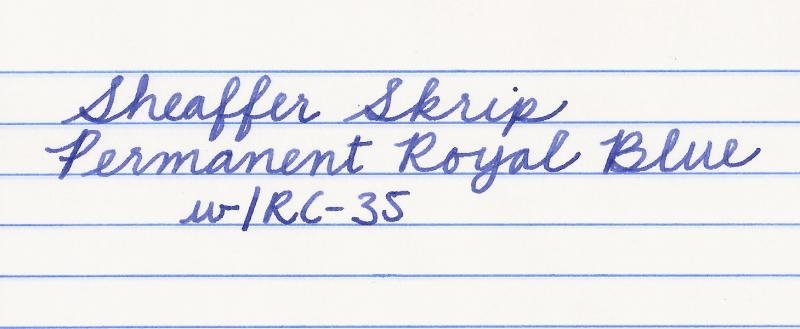 Sheaffer Skrip
Permanent Royal Blue
w/RC-35